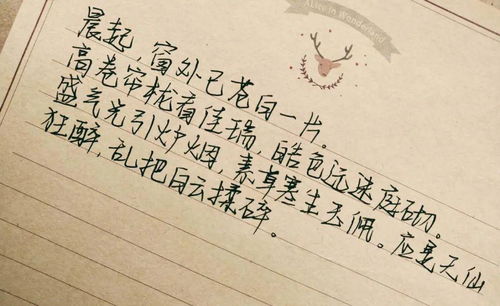 Alice in Wonderland
晨起,窗外已苍白一片。
高卷帘栊看佳瑞,皓色远迷庭砌。
盛气光引炉烟,素草寒生玉佩。应是天仙
狂醉,乱把白云揉碎。